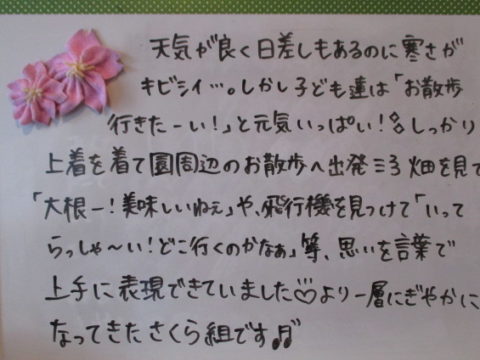 天気が良く日差しもあるのに寒さが
キビシイ…。しかし子ども達は「お散歩
行きたーい!」と元気いっぱい!しっかり
上着を着て園周辺のお散歩へ出発 畑を見て
「大根ー!美味しいねぇ」や、飛行機を見つけて「いって
らっしゃ〜い!どこ行くのかなぁ」等、思いを言葉で
上手に表現できていました♡より一層にぎやかに
なってきたさくら組です♫